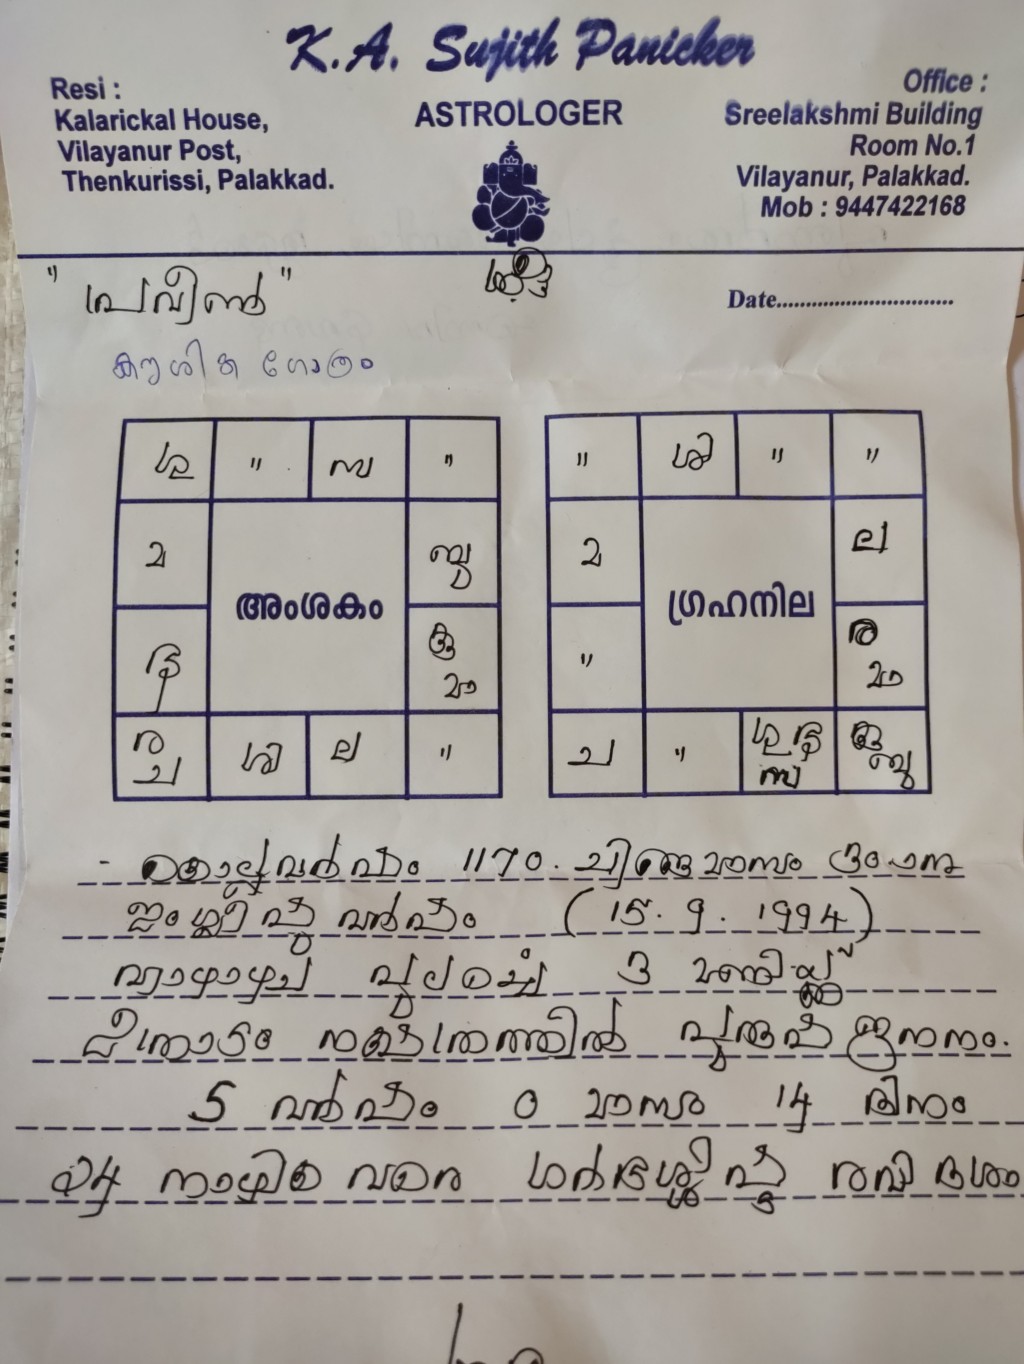 K.A. Sujith Panicker
ASTROLOGER
Resi :
Kalarickal House,
Vilayanur Post,
Thenkurissi, Palakkad.
Office :
Sreelakshmi Building
Room No.1
Vilayanur, Palakkad.
Mob : 9447422168
" പ്രവീൺ "
Date..............................
കൗശിക ഗോത്രം
ശു " സ "
മ ബു
അംശകം
കു
മാ
ര
ച ശി ല "
" ശി " "
മ ല
ഗ്രഹനില
" ര
മാ
ച " ശു
സ കു
ബു
കൊല്ലവർഷം 1170. ചിങ്ങമാസം
ഇംഗ്ലീഷു വർഷം (15.9.1994)
വ്യാഴാഴ്ച പുലർച്ചെ 3 മണിയ്ക്ക്
പൂരാടം നക്ഷത്രത്തിൽ പുരുഷ ജനനം.
5 വർഷം 0 മാസം 14 ദിനം
24 നാഴിക വരെ ഗർഭശ്ശിഷ്ട